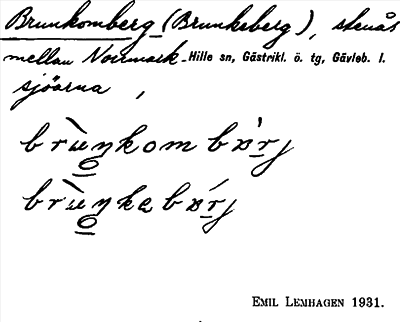 Brunkomberg (Brunkeberg), stenås
mellan Norrmark- Hille sn, Gästrikl. ö. tg, Gävleb. l.
sjöarna,
EMIL LEMHAGEN 1931.